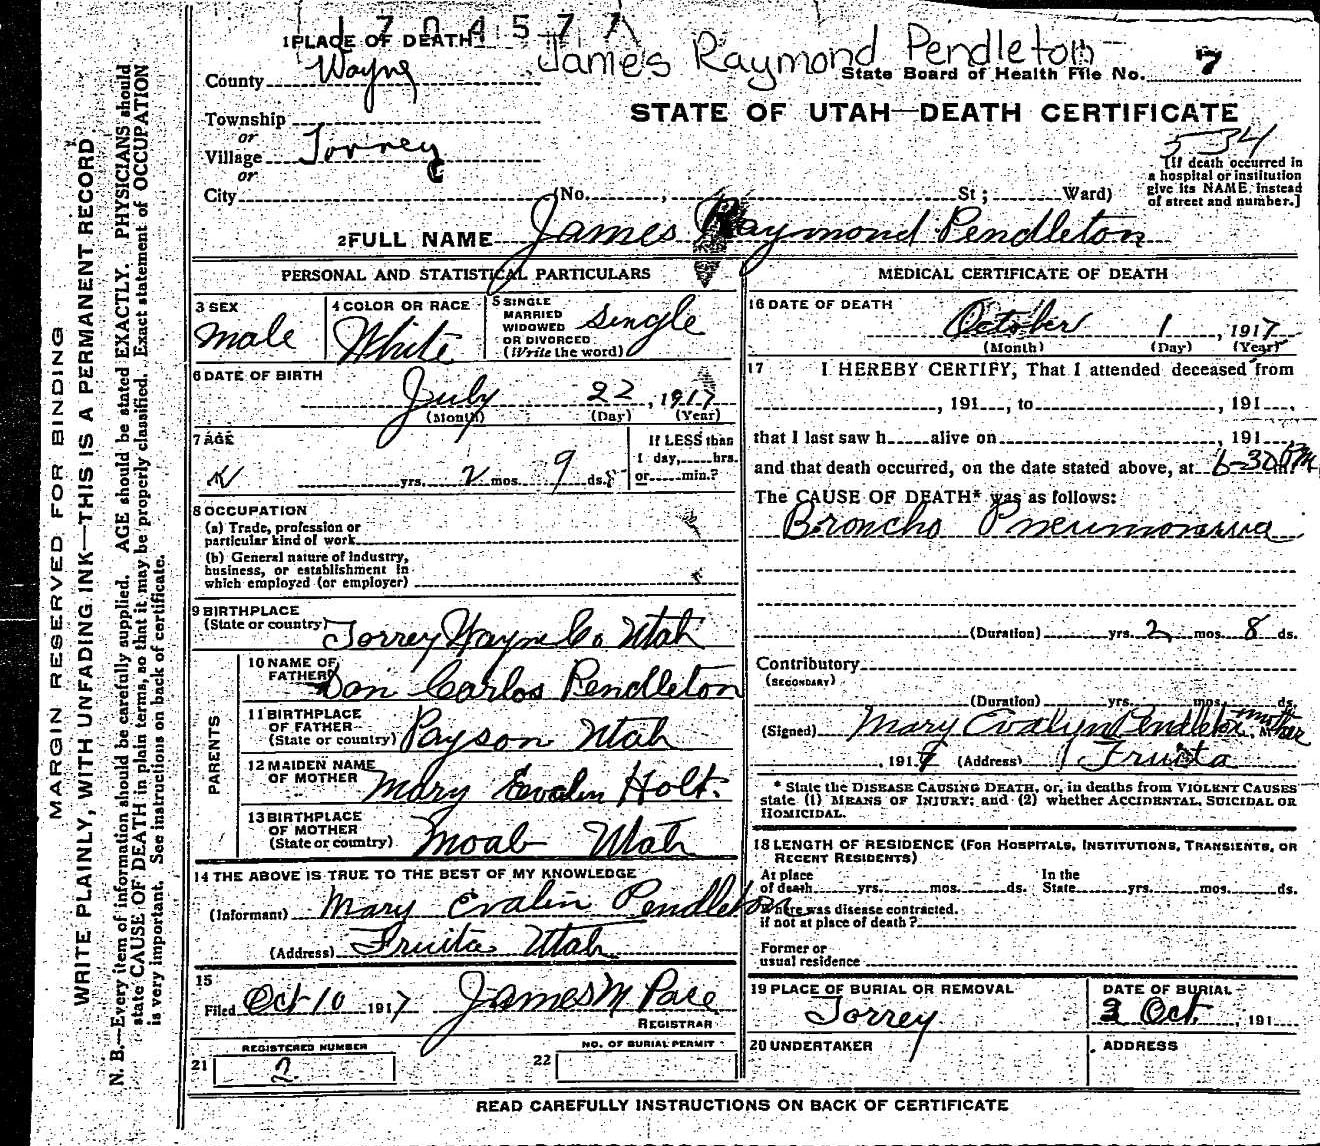 1704577
1 PLACE OF DEATH
James Raymond Pendleton
County Wayne
State Board of Health File No. 7
STATE OF UTAH—DEATH CERTIFICATE
Township
or
Village Torrey
or
534
[If death occurred in
a hospital or institution
give its NAME instead
of street and number.]
City (No. , St; Ward)
2 FULL NAME James Raymond Pendleton
PERSONAL AND STATISTICAL PARTICULARS
3 SEX
male
4 COLOR OR RACE
White
5 SINGLE
MARRIED
WIDOWED
OR DIVORCED
(Write the word)
single
6 DATE OF BIRTH
July 22, 1917
(Month) (Day) (Year)
7 AGE
If LESS than
1 day, hrs.
yrs. 2 mos. 9 ds. or min.?
8 OCCUPATION
(a) Trade, profession or
particular kind of work
(b) General nature of Industry,
business, or establishment in
which employed (or employer)
9 BIRTHPLACE
(State or country) Torrey Wayne Co Utah
PARENTS
10 NAME OF
FATHER Don Carlos Pendleton
11 BIRTHPLACE
OF FATHER
(State or country) Payson Utah
12 MAIDEN NAME
OF MOTHER Mary Evalin Holt.
13 BIRTHPLACE
OF MOTHER
(State or country) Moab Utah
14 THE ABOVE IS TRUE TO THE BEST OF MY KNOWLEDGE
(Informant) Mary Evalin Pendleton
(Address) Fruita Utah
15
Filed Oct 10 1917 James M Pace
REGISTRAR
REGISTERED NUMBER
21 2
NO. OF BURIAL PERMIT
22
MEDICAL CERTIFICATE OF DEATH
16 DATE OF DEATH
October 1, 1917
(Month) (Day) (Year)
17 I HEREBY CERTIFY, That I attended deceased from
, 191 , to , 191 ,
that I last saw h alive on , 191
and that death occurred, on the date stated above, at 6-30 PM
The CAUSE OF DEATH* was as follows:
Broncho Pneumonia
(Duration) yrs. 2 mos. 8 ds.
Contributory
(SECONDARY)
(Duration) yrs. mos. ds.
(Signed) Mary Evalyn Pendleton mother
, 1917 (Address) Fruita
* State the DISEASE CAUSING DEATH, or, in deaths from VIOLENT CAUSES
state (1) MEANS OF INJURY; and (2) whether ACCIDENTAL, SUICIDAL OR
HOMICIDAL.
18 LENGTH OF RESIDENCE (FOR HOSPITALS, INSTITUTIONS, TRANSIENTS, OR
RECENT RESIDENTS)
At place In the
of death yrs. mos. ds. State yrs. mos. ds.
Where was disease contracted.
if not at place of death?
Former or
usual residence
19 PLACE OF BURIAL OR REMOVAL
Torrey
DATE OF BURIAL
3 Oct. , 191
20 UNDERTAKER
ADDRESS
READ CAREFULLY INSTRUCTIONS ON BACK OF CERTIFICATE
MARGIN RESERVED FOR BINDING
WRITE PLAINLY, WITH UNFADING INK—THIS IS A PERMANENT RECORD
N. B.—Every item of information should be carefully supplied. AGE should be stated EXACTLY. PHYSICIANS should
state CAUSE OF DEATH in plain terms, so that it may be properly classified. Exact statement of OCCUPATION
is very important. See instructions on back of certificate.